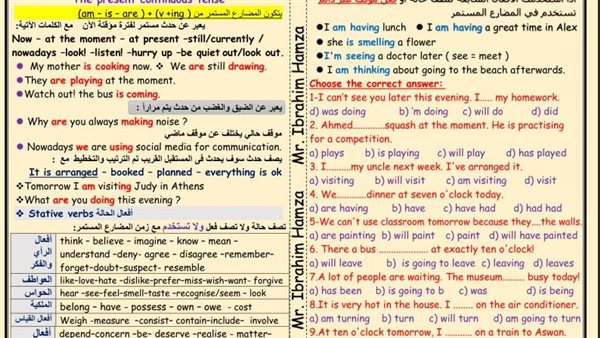 The present continuous tense
يتكون المضارع المستمر من (am – is – are ) + (v +ing )
يعبر عن حدث مستمر لفترة مؤقتة الآن مع الكلمات الآتية:
Now – at the moment – at present –still/currently /
nowadays -look! –listen! -hurry up –be quiet out/look out.
My mother is cooking now. ❖ We are still drawing.
They are playing at the moment.
Watch out! the bus is coming.
يعبر عن الضيق والغضب من حدث يتم مراراً :
Why are you always making noise ?
موقف حالي يختلف عن موقف ماضي
Nowadays we are using social media for communication.
يصف حدث سوف يحدث فى المستقبل القريب تم الترتيب والتخطيط مع :
It is arranged – booked – planned – everything is ok
❖Tomorrow I am visiting Judy in Athens
❖What are you doing this evening ?
❖ Stative verbs أفعال الحالة
تصف حالة ولا تصف فعل ولا تستخدم مع زمن المضارع المستمر:
أفعال الرأي والفكر
think – believe – imagine – know – mean –
understand -deny- agree – disagree –remember–
forget-doubt-suspect- resemble
العواطف like-love-hate -dislike-prefer-miss-wish-want- forgive
الحواس hear -see-feel-smell-taste -recognise/seem - look
الملكية belong – have – possess – own –owe - cost
أفعال القياس Weigh -measure -consist- contain-include- involve
أفعال depend-concern –be- deserve –realise –matter
Mr. Ibrahim Hamza
Mr. Ibrahim Hamza
تستخدم في المضارع المستمر
●I am having lunch ●I am having a great time in Alex
●she is smelling a flower
●I'm seeing a doctor later ( see = meet )
●I am thinking about going to the beach afterwards.
Choose the correct answer:
1-I can't see you later this evening. I..... my homework.
d) was doing b) 'm doing c) will do d) did
2. Ahmed............squash at the moment. He is practising
for a competition.
a) plays b) is playing c) will play d) has played
3. I..........my uncle next week. I've arranged it.
a) visiting b) will visit c) am visiting d) visit
4. We...........dinner at seven o'clock today.
a) are having b) have c) have had d) had
5-We can't use classroom tomorrow because they....the walls.
a) are painting b) will paint c) paint d) will have painted
6. There a bus ............. at exactly ten o'clock!
a) will leave b) is going to leave c) leaving d) leaves
7.A lot of people are waiting. The museum......... busy today!
a) has been b) is going to b c) was d) is being
8.It is very hot in the house. I ....... on the air conditioner.
a) am turning b) turn c) will turn d) am going to turn
9.At ten o'clock tomorrow, I ........... on a train to Aswan.